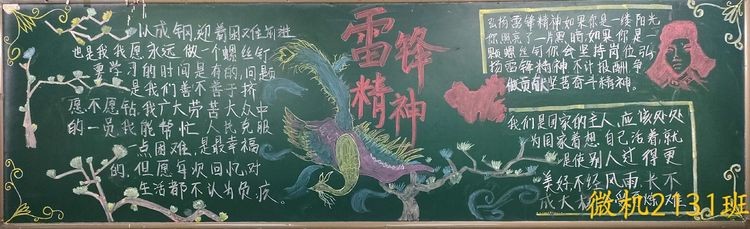 以成钢,迎着困难前进
也是我我愿永远做一个螺丝钉
要学习的时间是有的,问题
是我们善不善于挤
愿不愿钻,我广大劳苦大众中
的一员,我能帮忙人民克服
一点困难,是最幸福
的,但愿每次回忆,对
生活都不认为负疚。
雷锋
精神
弘扬雷锋精神如果你是一缕阳光
你照亮了一片黑暗,如果你是一
颗螺丝钉你会坚持岗位弘
扬雷锋精神不计报酬争
做贡献坚苦奋斗精神。
我们是国家的主人,应该处处
为国家着想自己活着,就
是使别人过得更
美好不经风雨,长不
成大
难
微机2131班